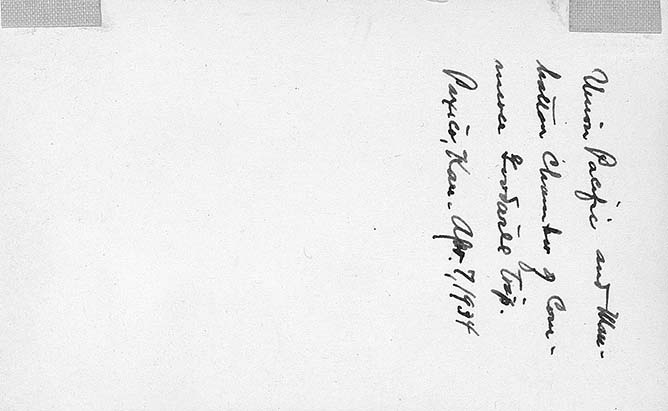 Union Pacific and Man-
hattan Chamber of Com-
merce Goodwill trip.
Paxico, Kan. Apr. 7, 1934